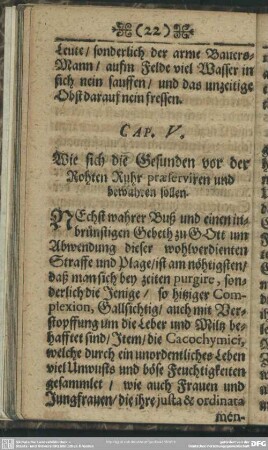 (22)
Leute/ sonderlich der arme Bauers-
Mann/ aufm Felde viel Wasser in
sich nein sauffen/ und das unzeitige
Obst darauf nein fressen.
CAP. V.
Wie sich die Gesunden vor der
Rohten Ruhr præserviren und
bewahren sollen.
NEchst wahrer Buß und einen in-
brünstigen Gebeth zu GOtt um
Abwendung dieser wohlverdienten
Straffe und Plage/ ist am nöhtigsten/
daß man sich bey zeiten purgire, son-
derlich die Jenige/ so hitziger Com-
plexion, Gallsichtig/ auch mit Ver-
stopffung um die Leber und Miltz be-
hafftet sind/ Item/ die Cacochymici,
welche durch ein unordentliches Leben
viel Unwusts und böse Feuchtigkeiten
gesammlet/ wie auch Frauen und
Jungfrauen/ die ihre justa & ordinata
men-